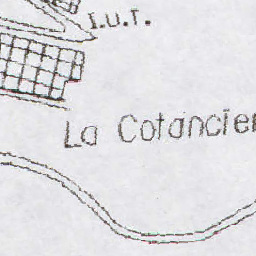 I.U.T.
La Cotancier